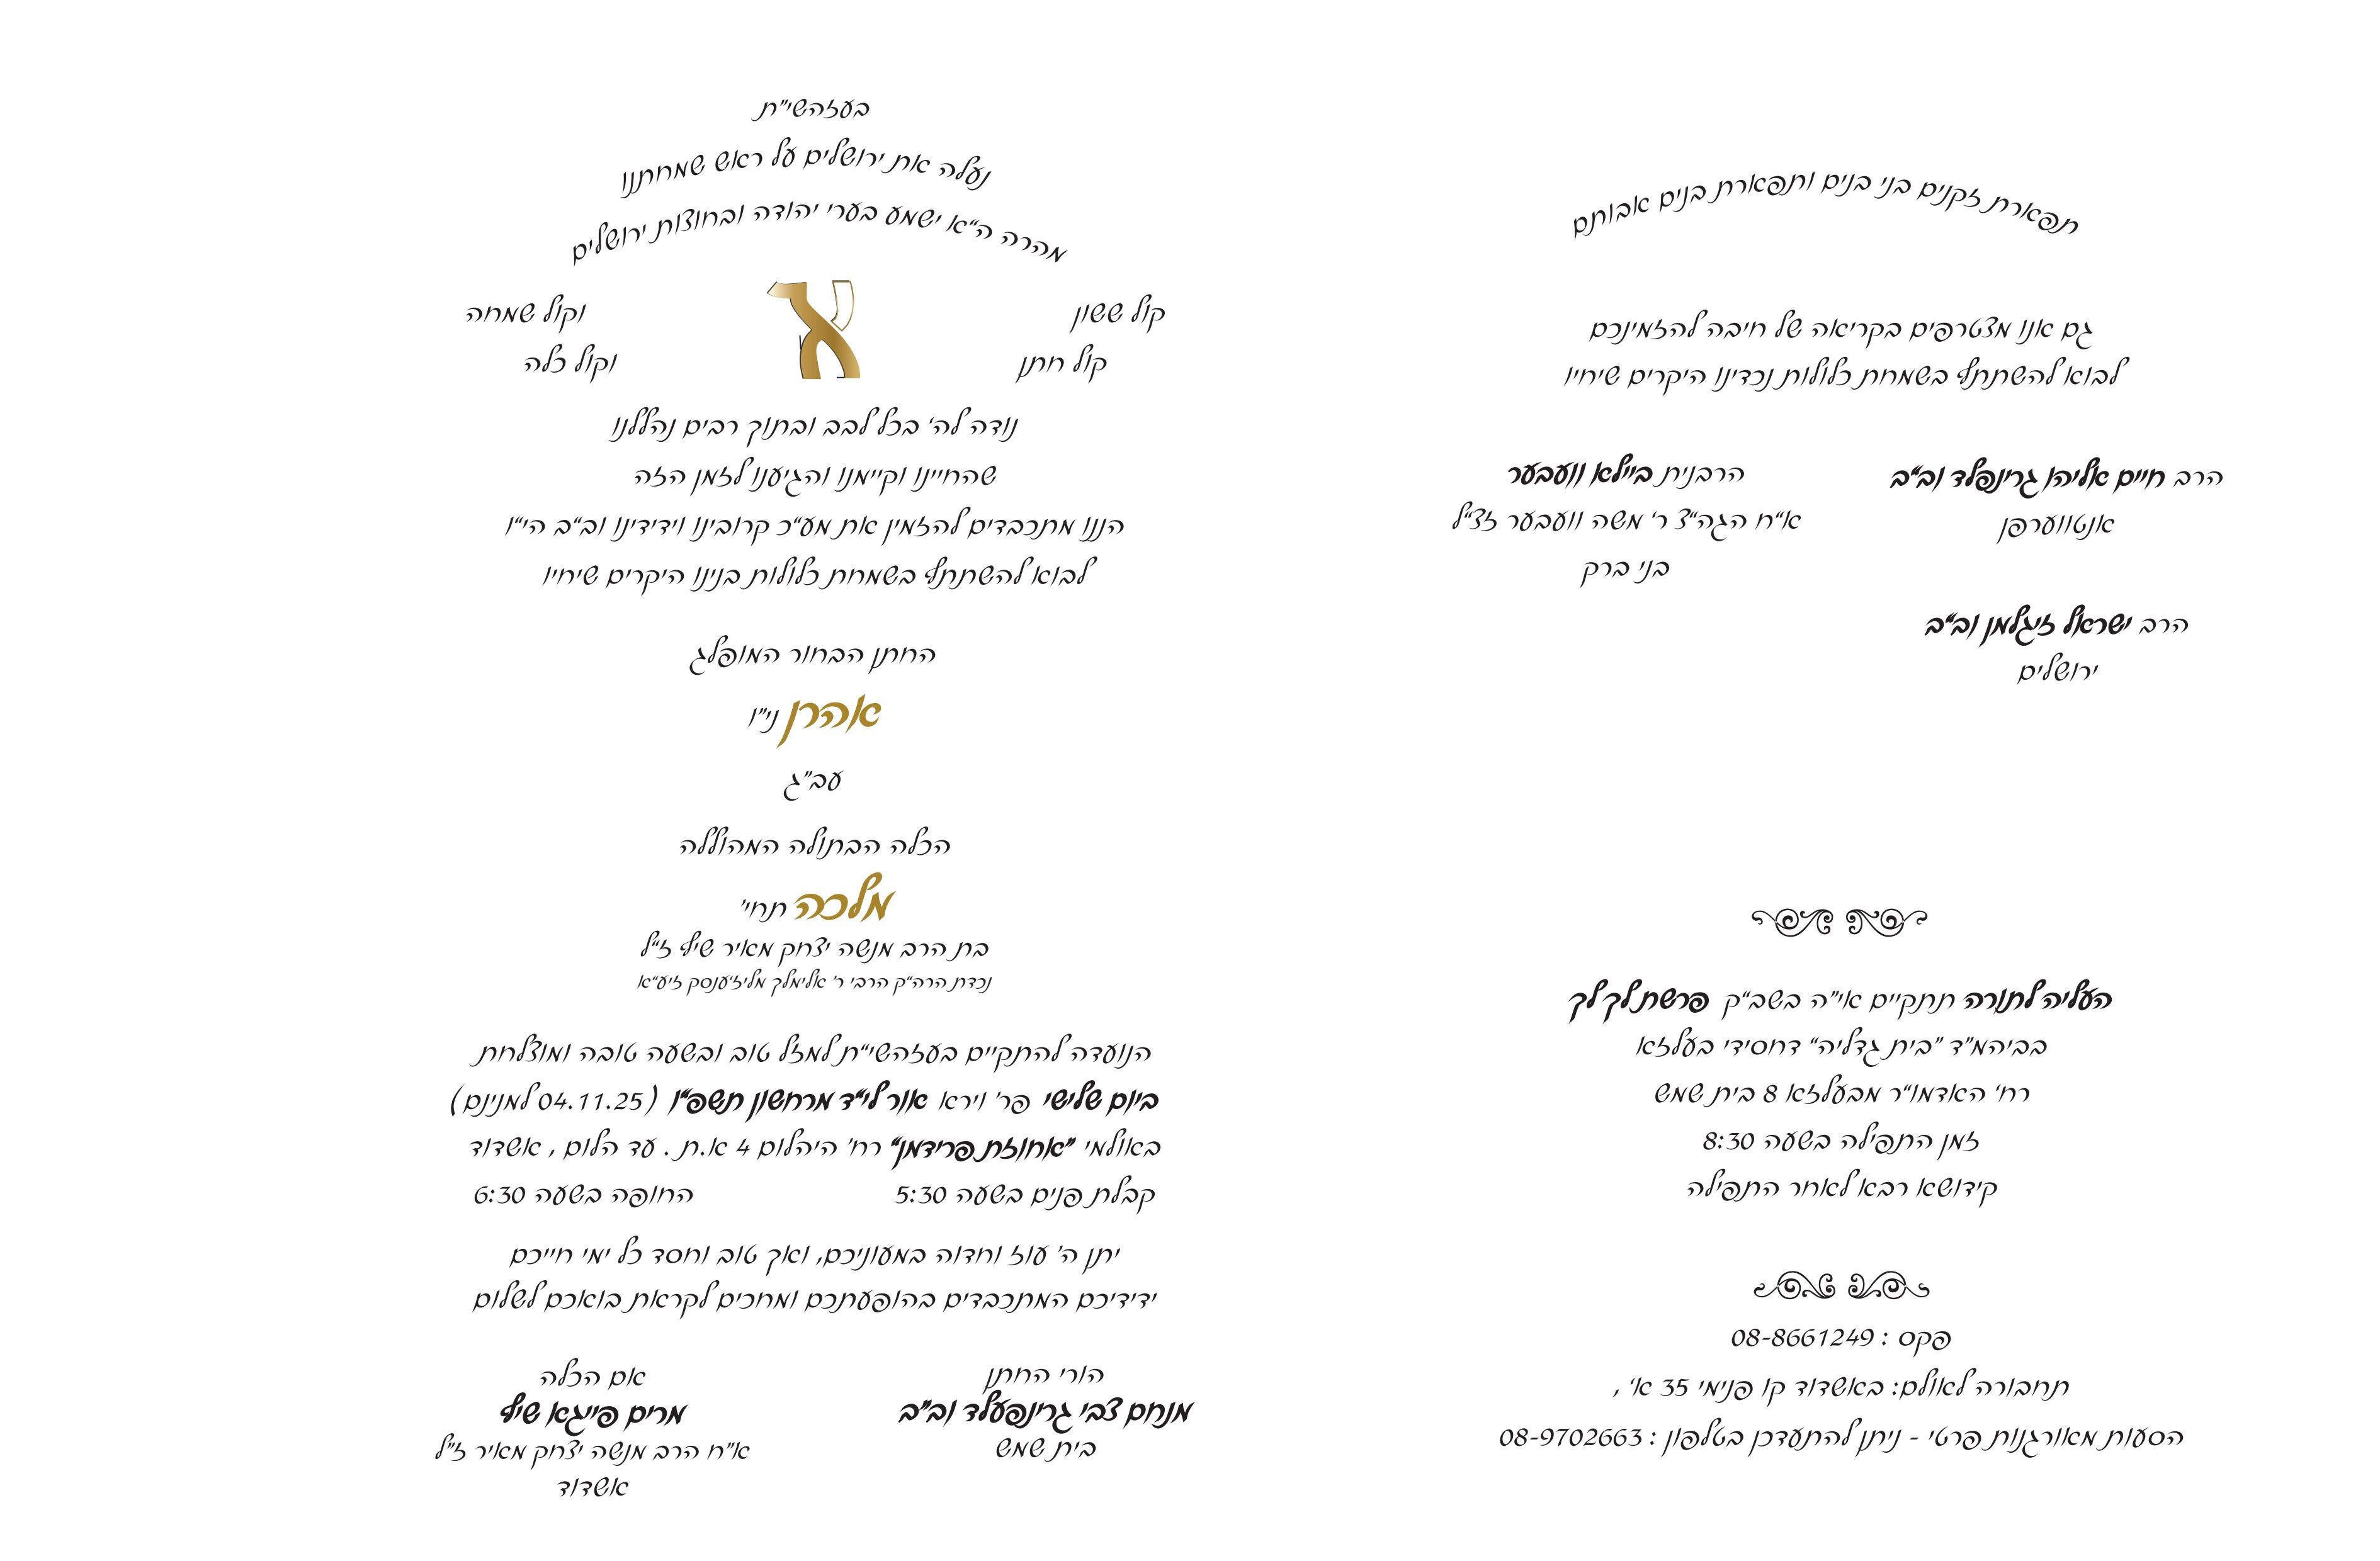 בעזהשי"ת
נעלה את ירושלים על ראש שמחתנו
מהרה ה"א ישמע בערי יהודה ובחוצות ירושלים
קול ששון וקול שמחה
קול חתן וקול כלה
נודה לה' בכל לבב ובתוך רבים נהללנו
שהחיינו וקיימנו והגיענו לזמן הזה
הננו מתכבדים להזמין את מע"כ קרובינו וידידינו וב"ב הי"ו
לבוא להשתתף בשמחת כלולות בנינו היקרים שיחיו
החתן הבחור המופלג
אהרן ני"ו
עב"ג
הכלה הבתולה המהוללה
מלכה תחי'
בת הרב מנשה יצחק מאיר שיף ז"ל
נכדת הרה"ק הרבי ר' אלימלך מליז'ענסק זיע"א
הנועדה להתקיים בעזהשי"ת למזל טוב ובשעה טובה ומוצלחת
ביום שלישי פר' וירא אור לי"ד מרחשון תשפ"ו (04.11.25 למנינם)
באולמי "אחוזת פרידמן" רח' היהלום 4 א.ת. עד הלום, אשדוד
קבלת פנים בשעה 5:30 החופה בשעה 6:30
יתן ה' עוז וחדוה במעוניכם, ואך טוב וחסד כל ימי חייכם
ידידיכם המתכבדים בהופעתכם ומחכים לקראת בואכם לשלום
הורי החתן
מנחם צבי גרינפעלד וב"ב
בית שמש
אם הכלה
מרים פייגא שיף
א"ח הרב מנשה יצחק מאיר ז"ל
אשדוד
תפארת זקנים בני בנים ותפארת בנים אבותם
גם אנו מצטרפים בקריאה של חיבה להזמינכם
לבוא להשתתף בשמחת כלולות נכדינו היקרים שיחיו
הרב חיים אליהו גרינפלד וב"ב
אנטווערפן
הרבנית ביילא וועבער
א"ח הגה"צ ר' משה וועבער זצ"ל
בני ברק
הרב ישראל זיגלמן וב"ב
ירושלים
העליה לתורה תתקיים אי"ה בשב"ק פרשת לך לך
בביהמ"ד "בית גדליה" דחסידי בעלזא
רח' האדמו"ר מבעלזא 8 בית שמש
זמן התפילה בשעה 8:30
קידושא רבא לאחר התפילה
פקס : 08-8661249
תחבורה לאולם: באשדוד קו פנימי 35 א',
הסעות מאורגנות פרטי - ניתן להתעדכן בטלפון : 08-9702663